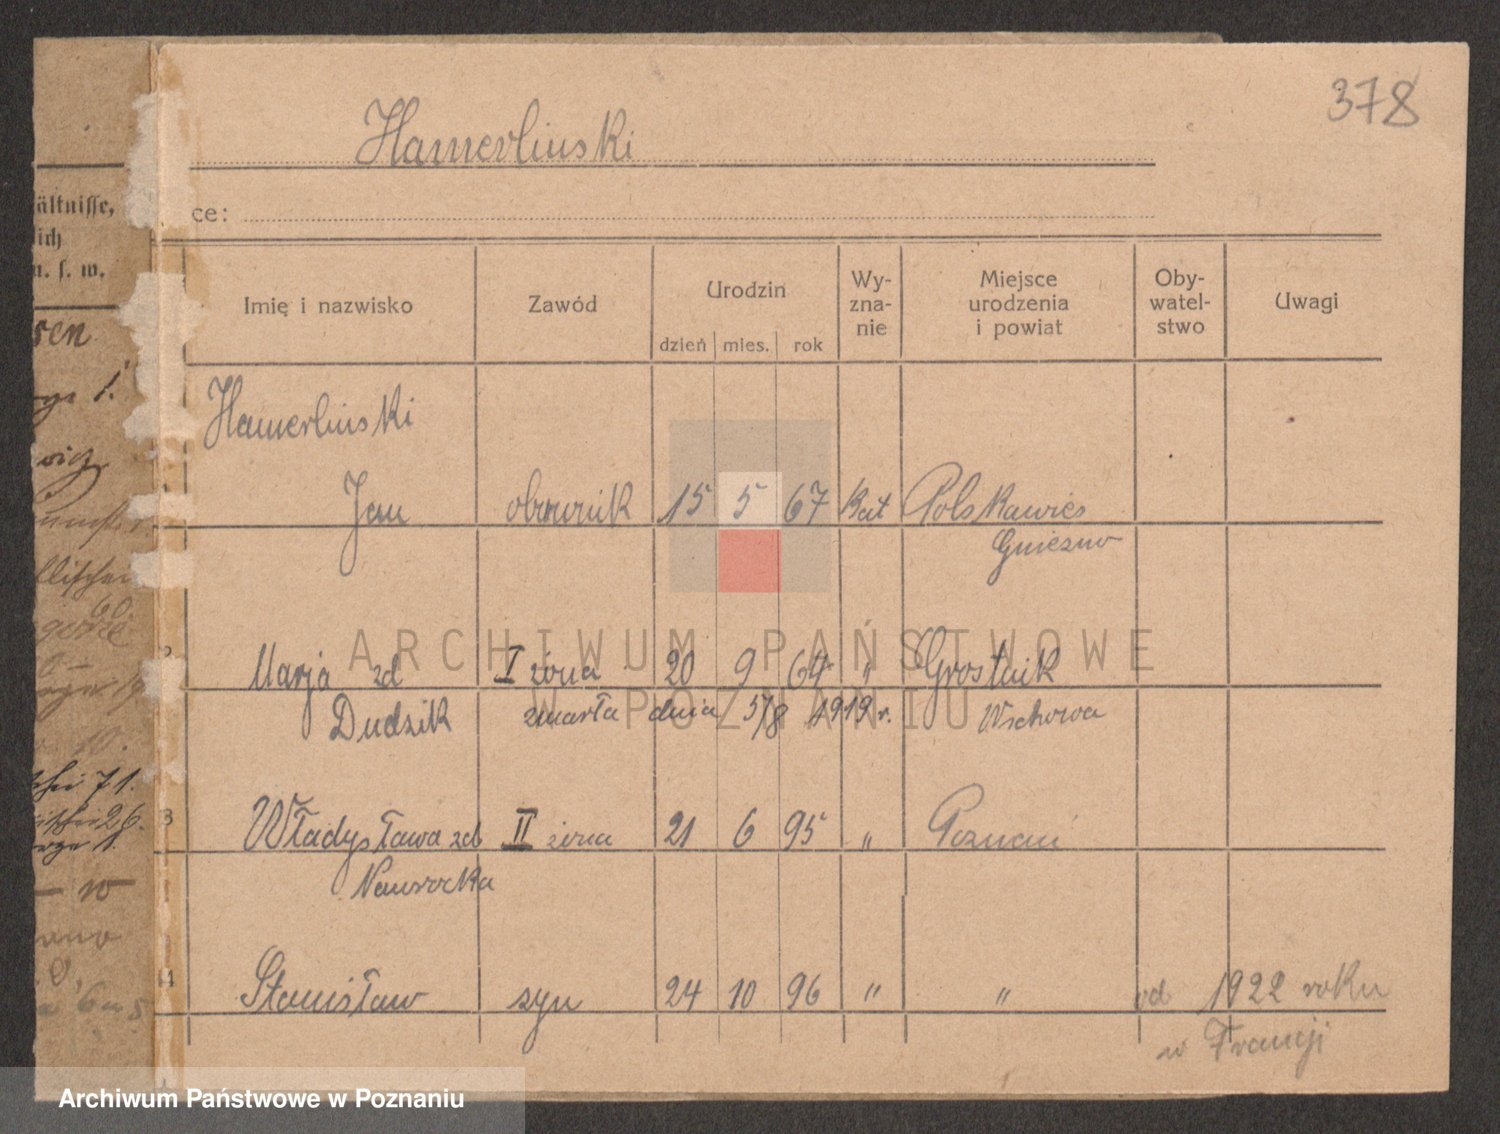 378
Hamerlinski
ce:
ältnisse,
lich
u. s. w.
Imię i nazwisko Zawód Urodzin Wy-zna-nie Miejsce urodzenia i powiat Oby-watel-stwo Uwagi
dzień mies. rok
Hamerlinski
Jan 15 5 67 Kat Polskawies
Gniezno
Marja zd I żona 20 9 64 "
Dudzik zmarła dnia 5/8 1919 r. Wschowa
3 Władysława zd II żona 21 6 95 " Poznań
Nawrocka
4 Stanisław syn 24 10 96 " " od 1922 roku
w Francji
ARCHIWUM PAŃSTWOWE
W POZNANIU
Archiwum Państwowe w Poznaniu